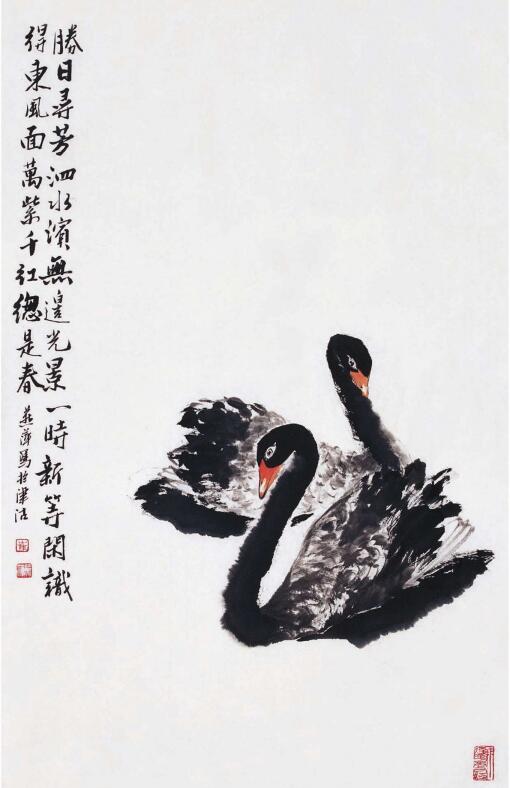 勝日尋芳泗水濱無邊光景一時新等閑識
得東風面萬紫千紅總是春
燕萍寫於津沽